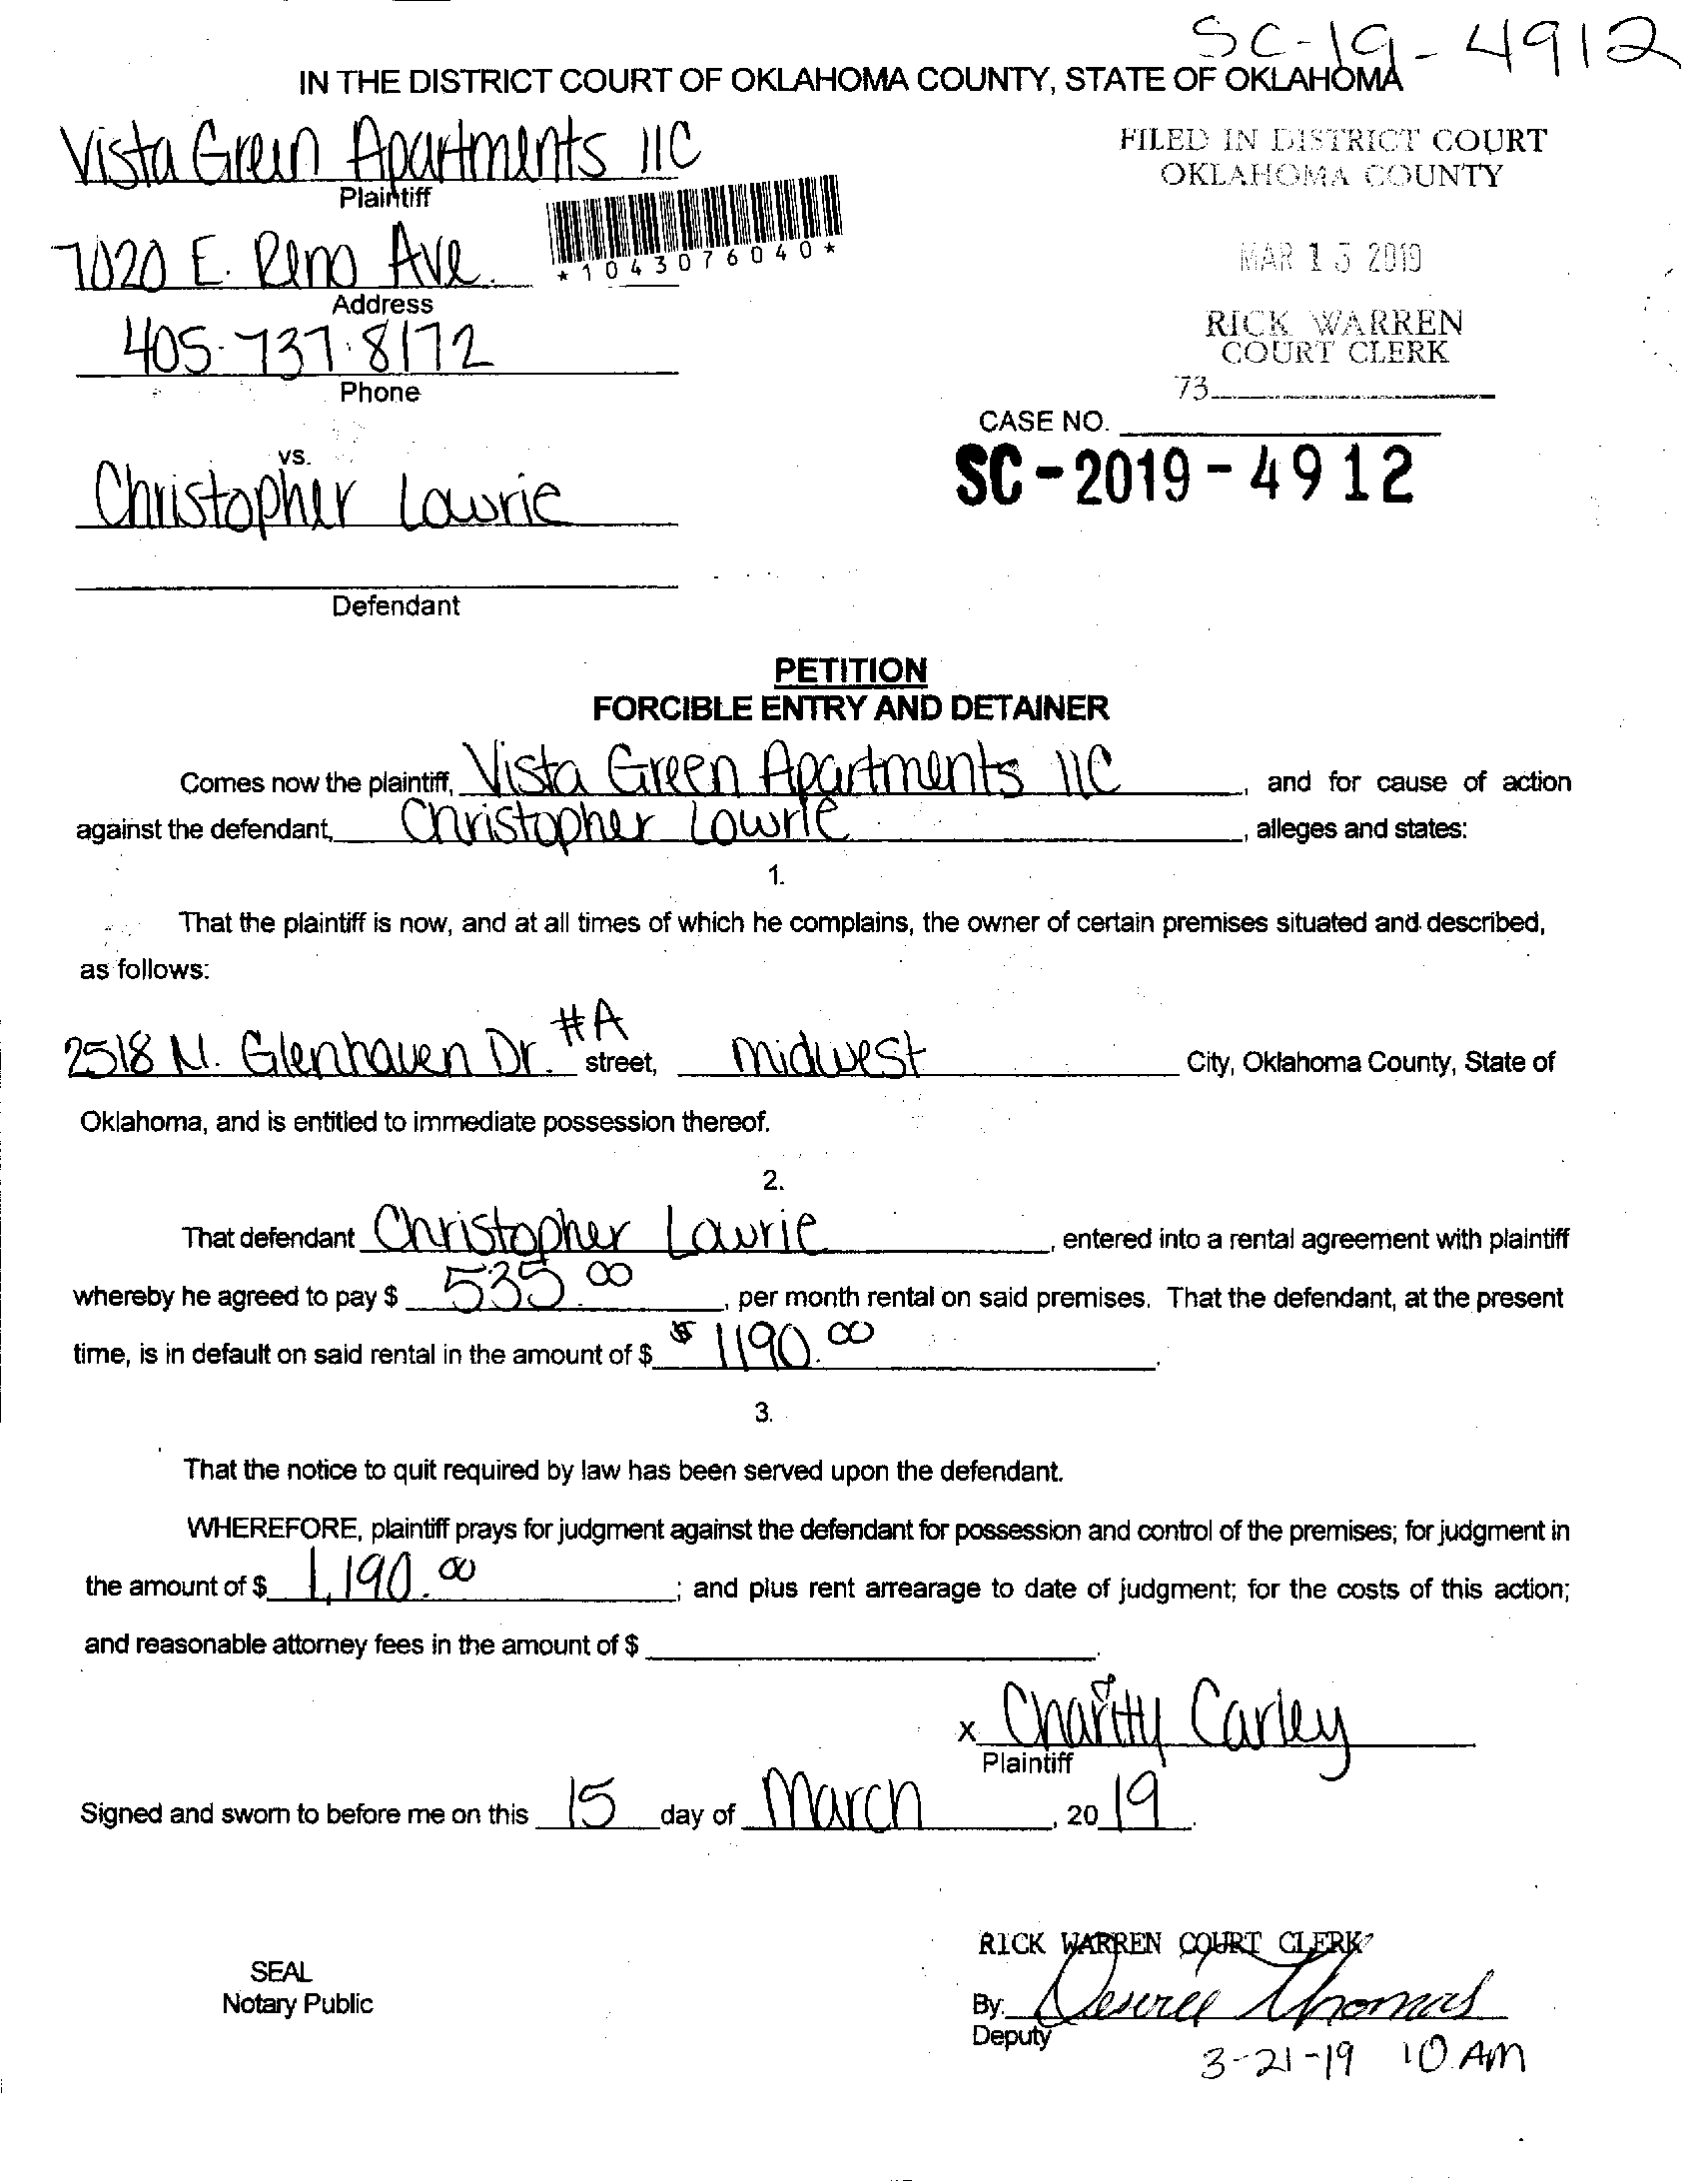 SC-19-4912
IN THE DISTRICT COURT OF OKLAHOMA COUNTY, STATE OF OKLAHOMA
Vista Green Apartments llC
Plaintiff
FILED IN DISTRICT COURT
OKLAHOMA COUNTY
*1043076040*
7020 E. Reno Ave.
Address
MAR 15 2019
405-737-8172
Phone
RICK WARREN
COURT CLERK
73
CASE NO.
SC-2019-4912
vs.
Christopher Lawrie
Defendant
PETITION
FORCIBLE ENTRY AND DETAINER
Comes now the plaintiff, Vista Green Apartments llC, and for cause of action
against the defendant, Christopher Lawrie, alleges and states:
1.
That the plaintiff is now, and at all times of which he complains, the owner of certain premises situated and described,
as follows:
2518 N. Glenhaven Dr. #A street, Midwest City, Oklahoma County, State of
Oklahoma, and is entitled to immediate possession thereof.
2.
That defendant Christopher Lawrie, entered into a rental agreement with plaintiff
whereby he agreed to pay $ 535.00, per month rental on said premises. That the defendant, at the present
time, is in default on said rental in the amount of $ $1190.00.
3.
That the notice to quit required by law has been served upon the defendant.
WHEREFORE, plaintiff prays for judgment against the defendant for possession and control of the premises; for judgment in
the amount of $ 1,190.00; and plus rent arrearage to date of judgment; for the costs of this action;
and reasonable attorney fees in the amount of $ .
x Charity Carley
Plaintiff
Signed and sworn to before me on this 15 day of March, 2019.
RICK WARREN COURT CLERK
SEAL
Notary Public
By: Desiree Thomas
Deputy
3-21-19 10 AM